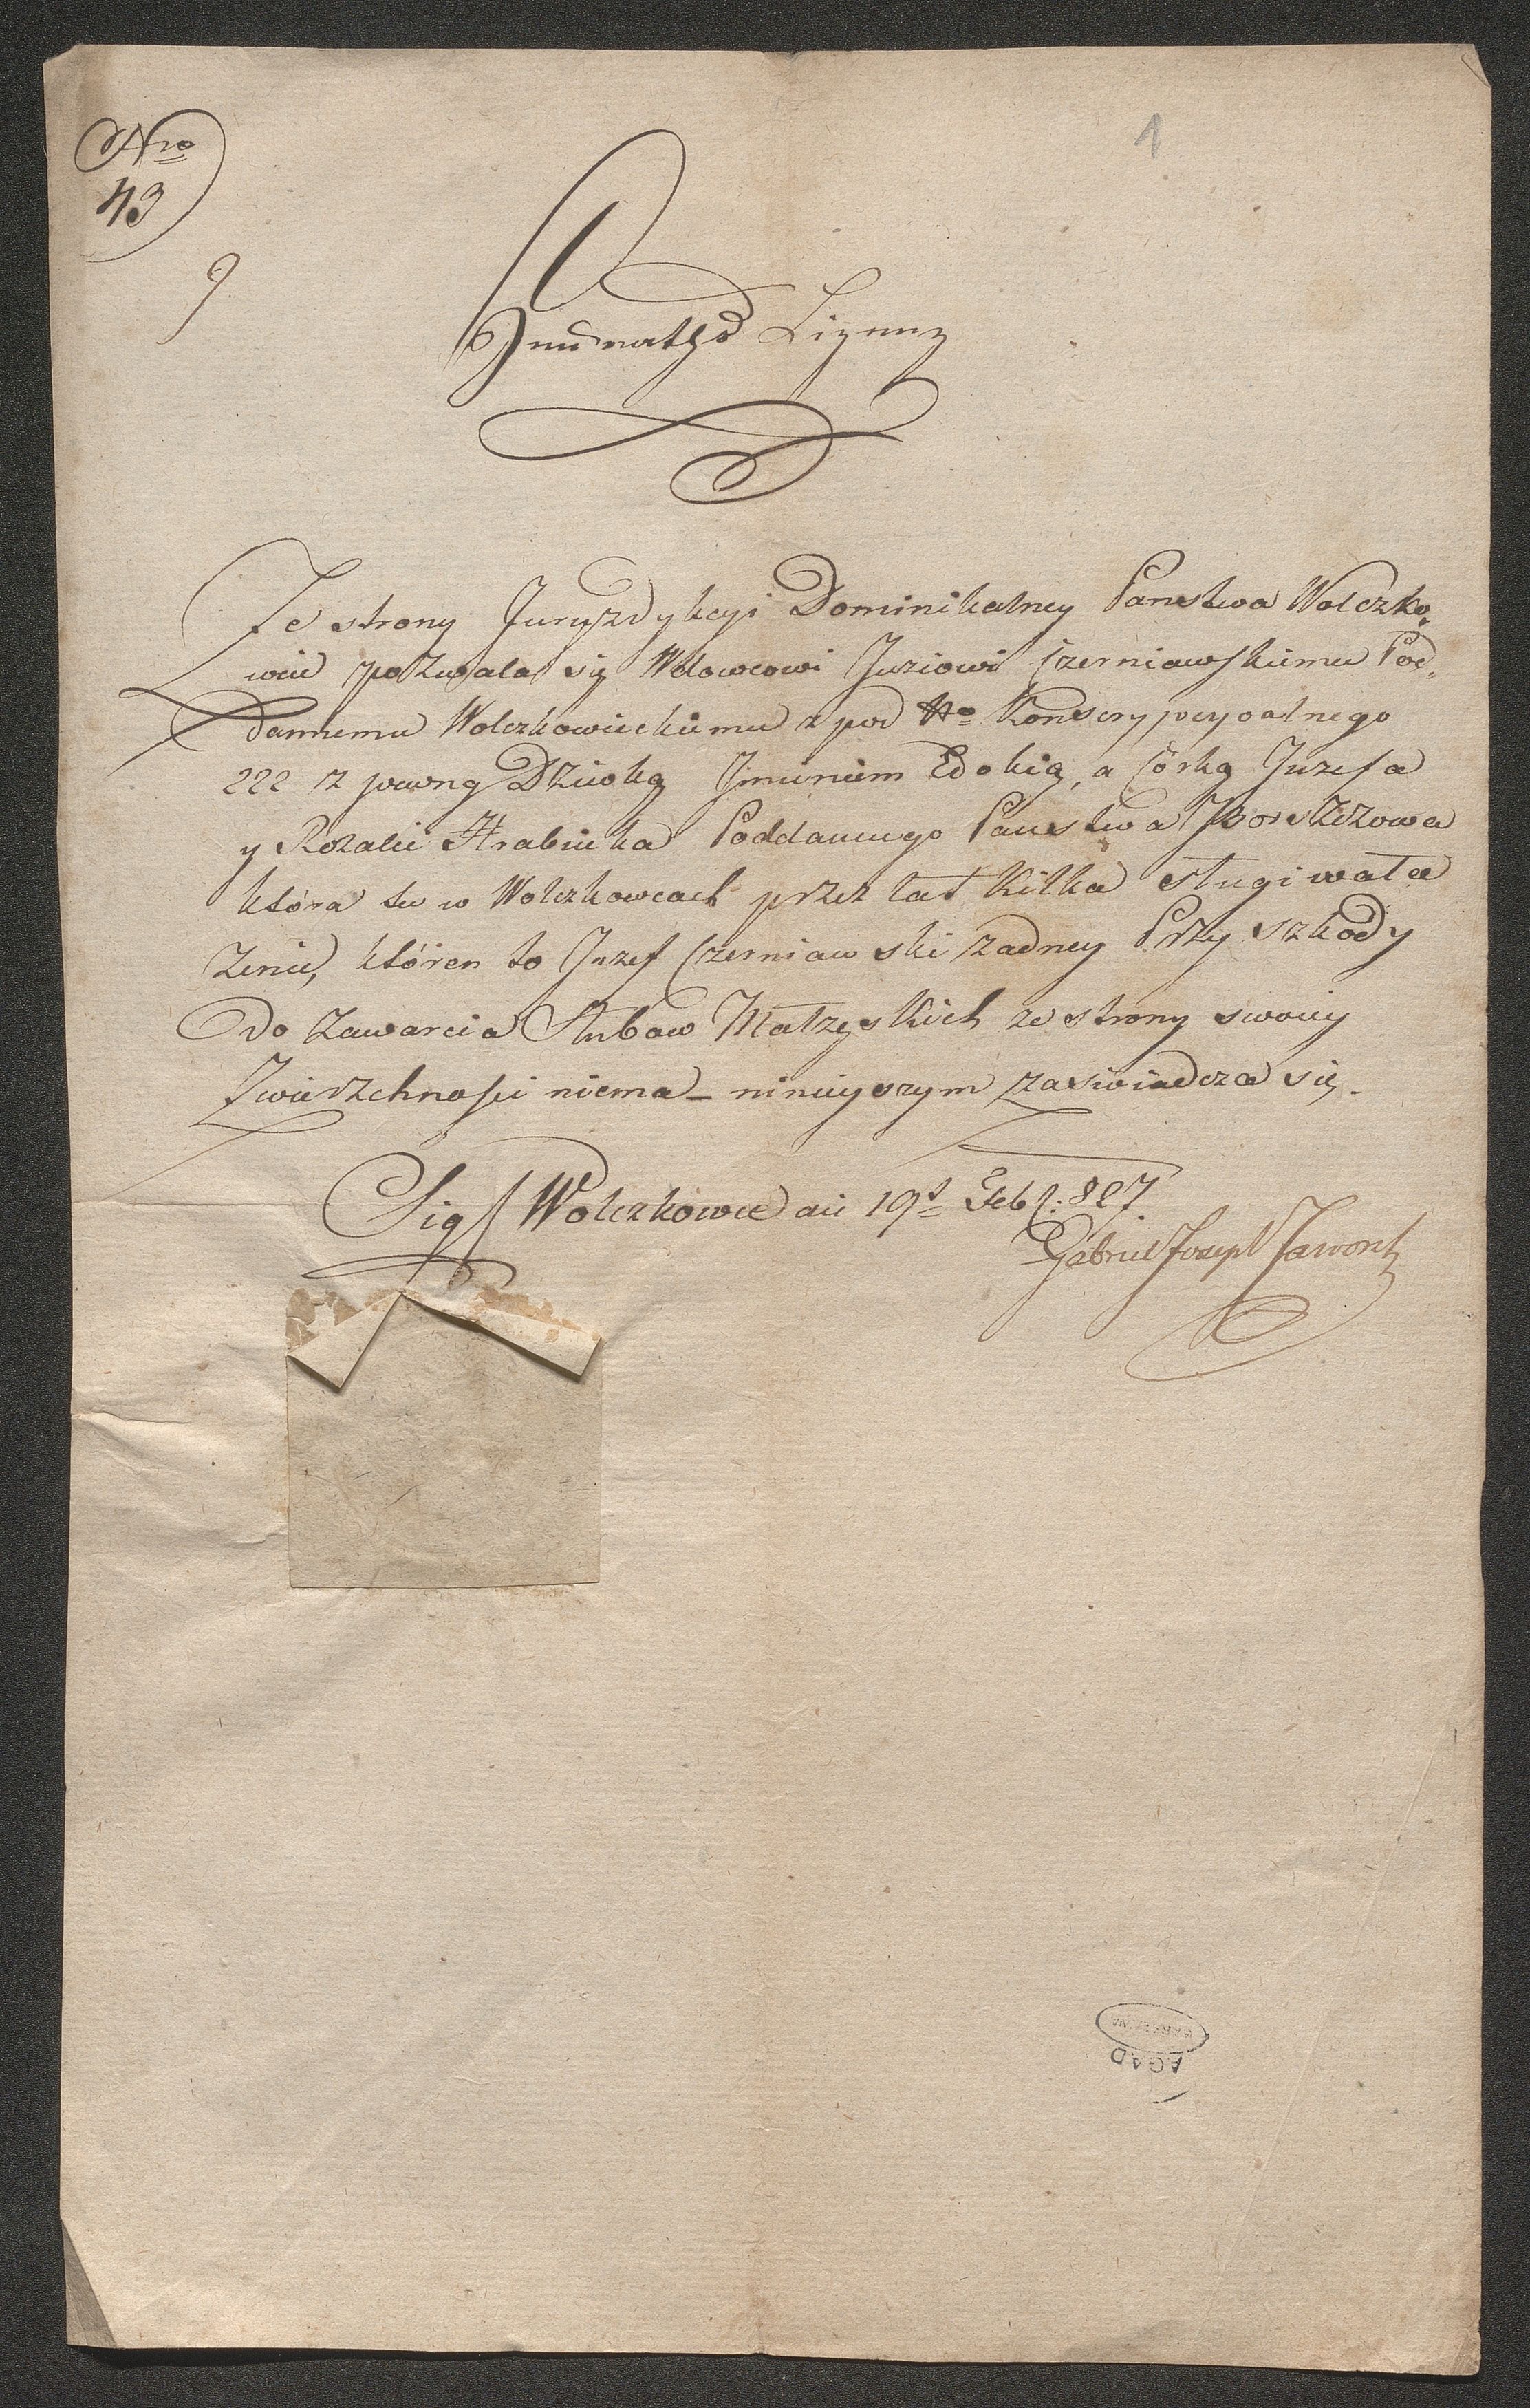 Nro
43
1
9
Heuraths Lizenz
Ze strony Juryzdykcyi Dominikalney Panstwa Wolczko„
wiec pozwala się Wdowcowi Juziowi Czerniawskiemu Pod„
danemu Wolczkowieckiemu z pod Nro Konskrypcyoalnego
222 z pewną Dziwką Jmieniem Edokią, a Córką Juzefa
y Rozalii Hrabiuka Poddanego Panstwa Borszczowa
która tu w Wolczkowcach przez lat kilka sługiwała
Żenić, któren to Juzef Czerniawski żadney Przyszkody
Do Zawarcia Slubow Małzęskich ze strony swoiey
Zwierzchnosci niema – ninieyszym zaswiadcza się.
Sig Wolczkowce am 19t Feb: 827
Gabriel Joseph Jaworski
WARSZAWA
AGAD